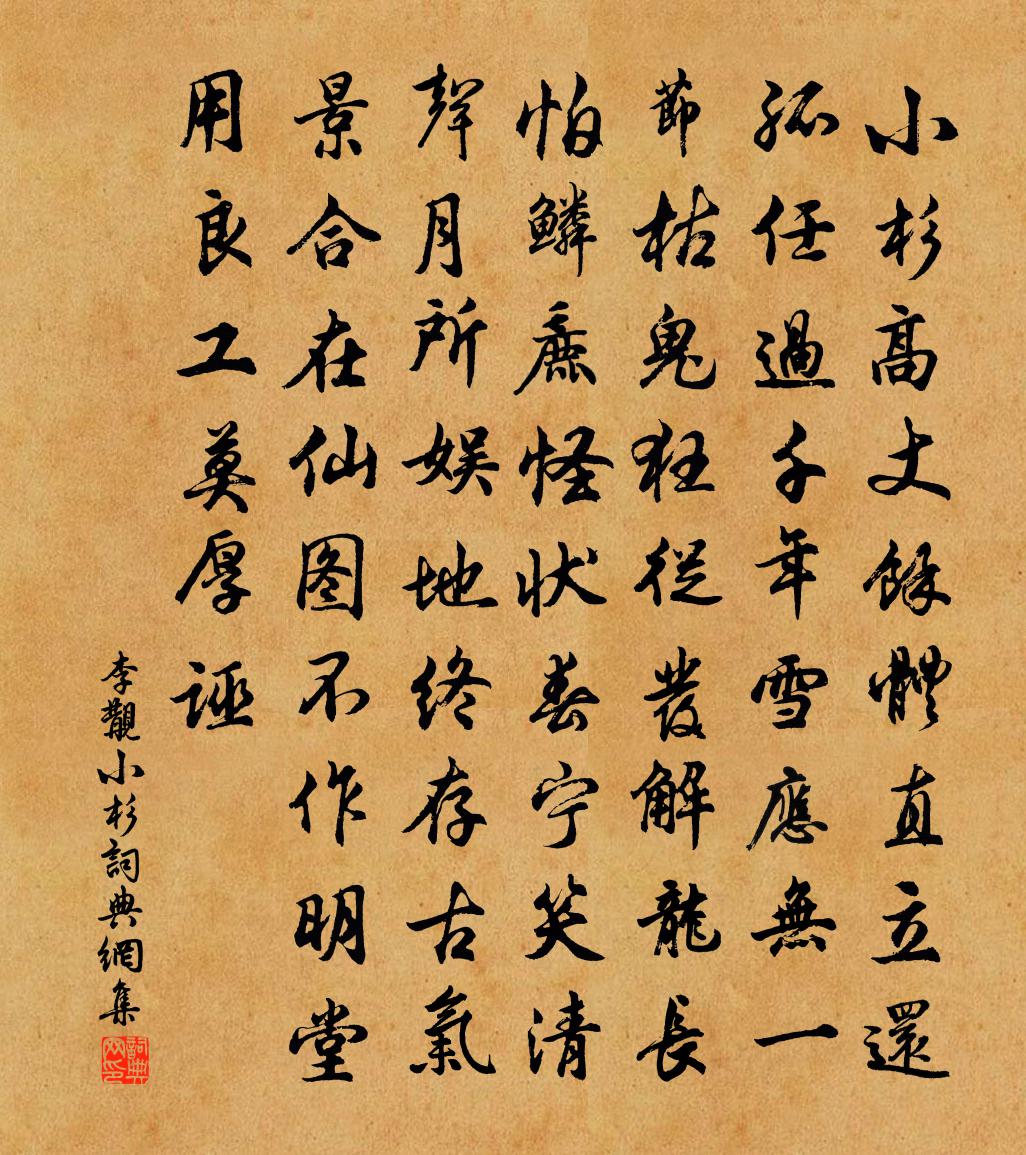 小杉高丈餘體直立還
孤任過千年雪應無一
節枯鬼狂從發解龍長
怕鱗麁怪状春宁笑清
聲月所娱地终存古氣
景合在仙图不作明堂
用良工莫厚誣
李觀小杉詞典網集
詞典网印